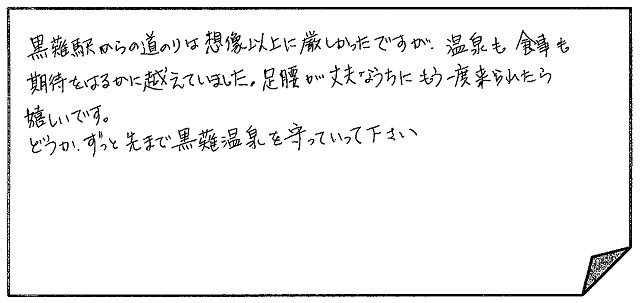 黒薙駅からの道のりは想像以上に厳しかったですが、温泉も食事も
期待をはるかに越えていました。足腰が丈夫なうちにもう一度来られたら
嬉しいです。
どうか、ずっと先まで黒薙温泉を守っていって下さい